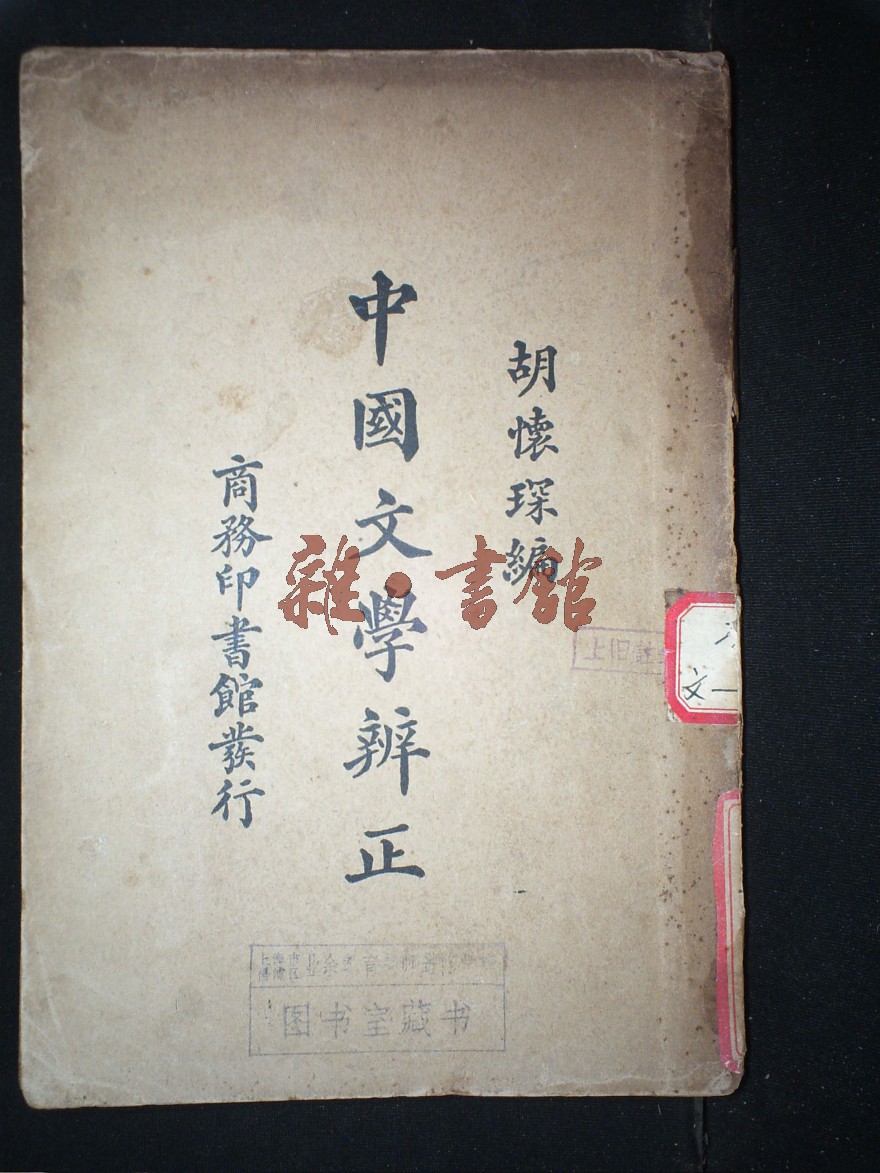 胡懷琛編
中國文學辨正
商務印書館發行
雜·書館
上旧
文一
图书室藏书